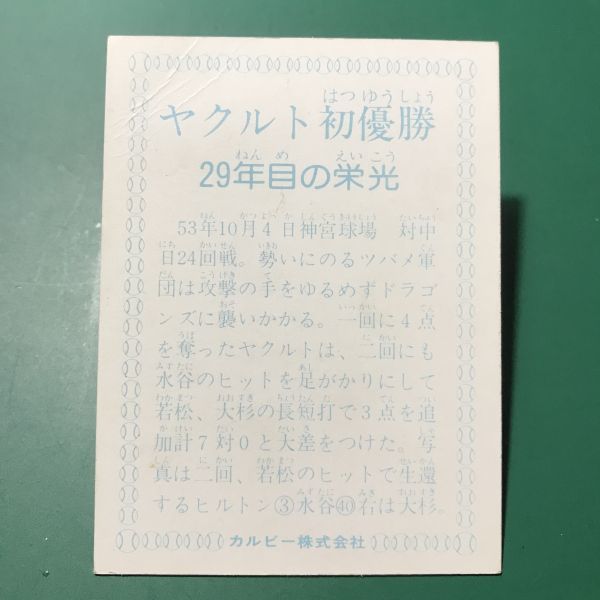 はつゆうしょう
ヤクルト初優勝
ねんめ えいこう
29年目の栄光
53年10月4日神宮球場 対中
日24回戦。勢いにのるツバメ軍
団は攻撃の手をゆるめずドラゴ
ンズに襲いかかる。一回に4点
を奪ったヤクルトは、二回にも
水谷のヒットを足がかりにして
若松、大杉の長短打で3点を追
加計7対0と大差をつけた。写
真は二回、若松のヒットで生還
するヒルトン③水谷㊵右は大杉。
カルビー株式会社